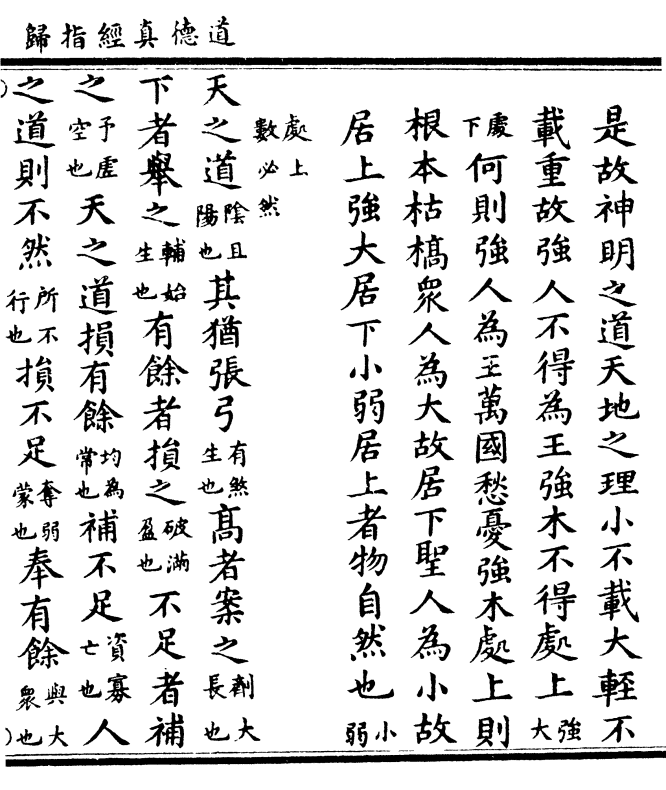 道德真經指歸
是故神明之道天地之理小不載大輕不
載重故強人不得為王強木不得處上強大
處下何則強人為王萬國愁憂強木處上則
根本枯槁衆人為大故居下聖人為小故
居上強大居下小弱居上者物自然也小弱
處上數必然
天之道陰且陽也其猶張弓有煞生也高者案之劑大長也
下者舉之輔始生也有餘者損之破滿盈也不足者補
之予虛空也天之道損有餘均為常也補不足資寡亡也人
之道則不然所不行也損不足奪弱蒙也奉有餘與大衆也